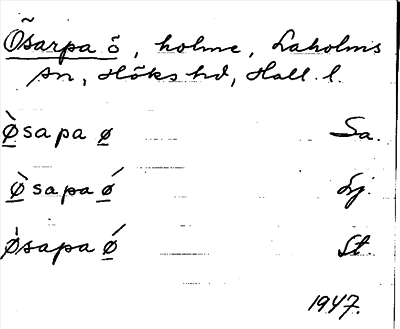 Õsarpa ö, holme, Laholms
sn, Höks hd, Hall. l.
ø̀sapa ø Sa.
ø̀sapa ǿ Lj.
ø̀sapa ǿ St.
1947.